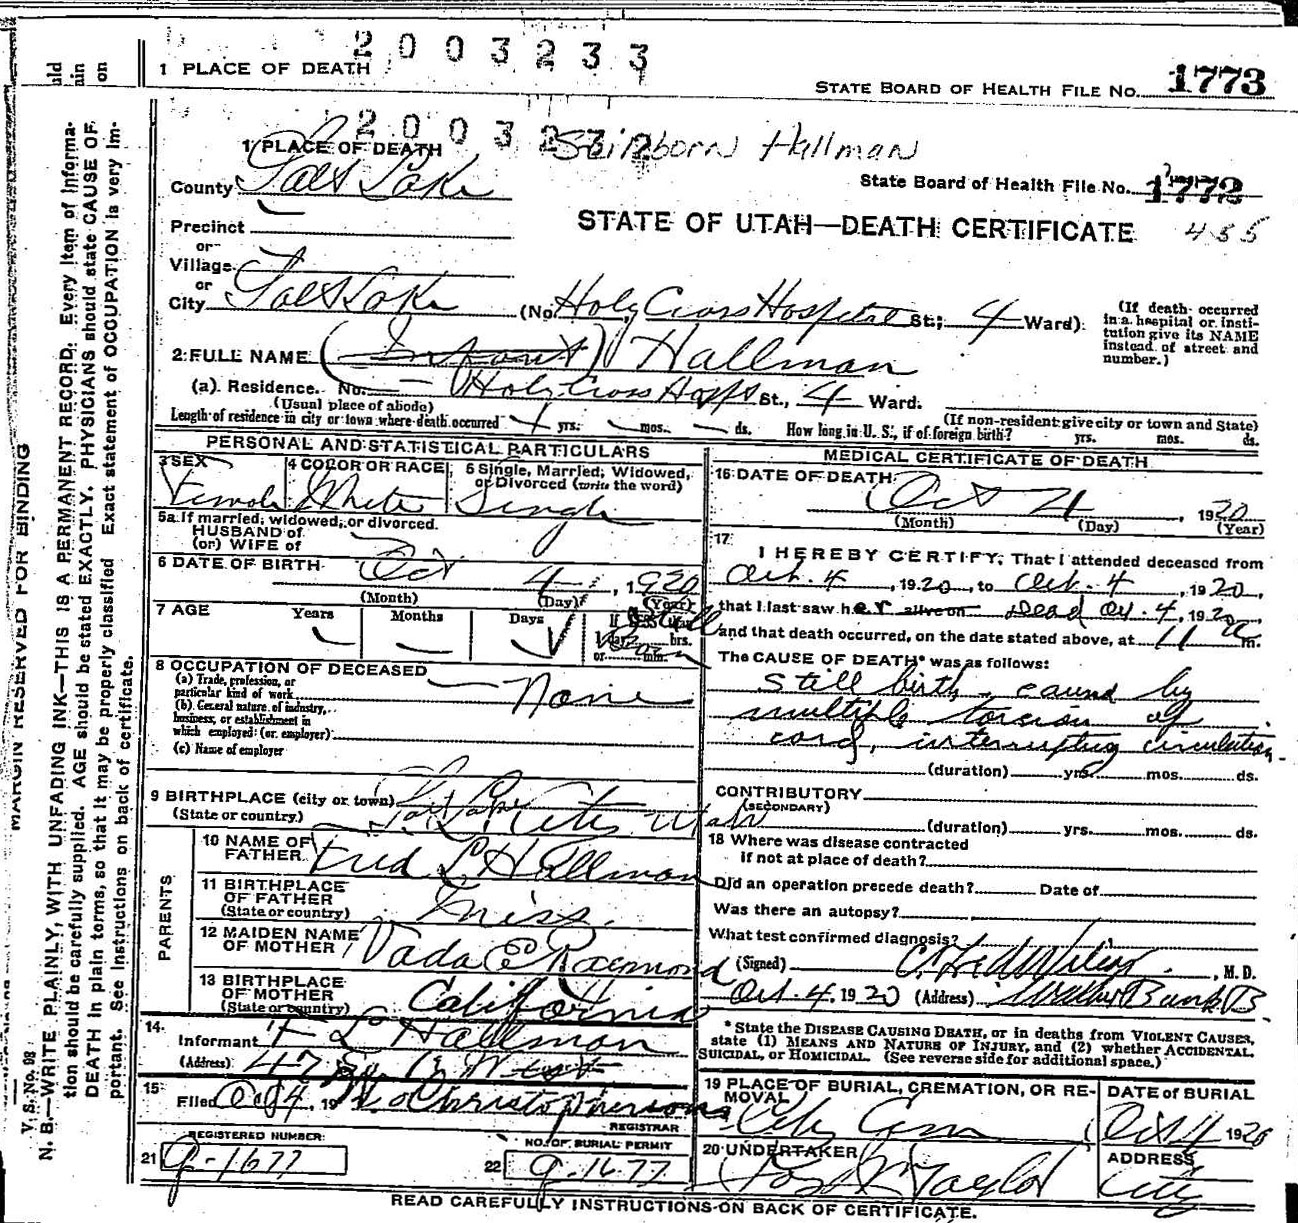 2003233
1 PLACE OF DEATH
STATE BOARD OF HEALTH FILE NO. 1773
uld
ain
on
2003232
Stillborn Hallman
1 PLACE OF DEATH
County Salt Lake
State Board of Health File No. 1772
Precinct
STATE OF UTAH—DEATH CERTIFICATE 455
or
Village
or
City Salt Lake (No. Holy Cross Hospital St.; 4 Ward)
(If death occurred in a hospital or institution give its NAME instead of street and number.)
2 FULL NAME (Infant) Hallman
(a) Residence. No. — Holy Cross Hospt St., 4 Ward.
(Usual place of abode) (If non-resident give city or town and State)
Length of residence in city or town where death occurred yrs. mos. ds. How long in U. S., if of foreign birth? yrs. mos. ds.
PERSONAL AND STATISTICAL PARTICULARS
3 SEX Female
4 COLOR OR RACE White
5 Single, Married, Widowed, or Divorced (write the word) Single
5a If married, widowed, or divorced.
HUSBAND of
(or) WIFE of
6 DATE OF BIRTH Oct 4, 1920
(Month) (Day) (Year)
7 AGE Years Months Days Still Born
hrs.
or min.
8 OCCUPATION OF DECEASED
(a) Trade, profession, or
particular kind of work None
(b) General nature of industry,
business, or establishment in
which employed (or employer)
(c) Name of employer
9 BIRTHPLACE (city or town) Salt Lake City Utah
(State or country)
PARENTS
10 NAME OF FATHER Fred L Hallman
11 BIRTHPLACE OF FATHER Miss.
(State or country)
12 MAIDEN NAME OF MOTHER Vada E Raymond
13 BIRTHPLACE OF MOTHER California
(State or country)
14. Informant F L Hallman
(Address) West
15 Filed Oct 4, 19 Christopherson
REGISTRAR
REGISTERED NUMBER:
21 g-1677
NO. OF BURIAL PERMIT
22 g-1677
MEDICAL CERTIFICATE OF DEATH
16 DATE OF DEATH
Oct 4, 1920
(Month) (Day) (Year)
17
I HEREBY CERTIFY, That I attended deceased from
Oct. 4, 1920, to Oct. 4, 1920,
that I last saw her alive on Dead Oct. 4, 1920
and that death occurred, on the date stated above, at 11 a m.
The CAUSE OF DEATH* was as follows:
Still birth - caused by
multiple torsion of
cord, interrupting circulation.
(duration) yrs. mos. ds.
CONTRIBUTORY
(SECONDARY)
(duration) yrs. mos. ds.
18 Where was disease contracted
if not at place of death?
Did an operation precede death? Date of
Was there an autopsy?
What test confirmed diagnosis?
(Signed) , M. D.
Oct. 4, 1920 (Address) Walker Bank B
* State the DISEASE CAUSING DEATH, or in deaths from VIOLENT CAUSES,
state (1) MEANS AND NATURE OF INJURY, and (2) whether ACCIDENTAL,
SUICIDAL, or HOMICIDAL. (See reverse side for additional space.)
19 PLACE OF BURIAL, CREMATION, OR REMOVAL City Cem
DATE OF BURIAL Oct 4 1920
20 UNDERTAKER Taylor
ADDRESS City
READ CAREFULLY INSTRUCTIONS ON BACK OF CERTIFICATE.
MARGIN RESERVED FOR BINDING
V. S. No. 98
N. B.—WRITE PLAINLY, WITH UNFADING INK—THIS IS A PERMANENT RECORD. Every item of informa-
tion should be carefully supplied. AGE should be stated EXACTLY. PHYSICIANS should state CAUSE OF
DEATH in plain terms, so that it may be properly classified. Exact statement of OCCUPATION is very im-
portant. See instructions on back of certificate.